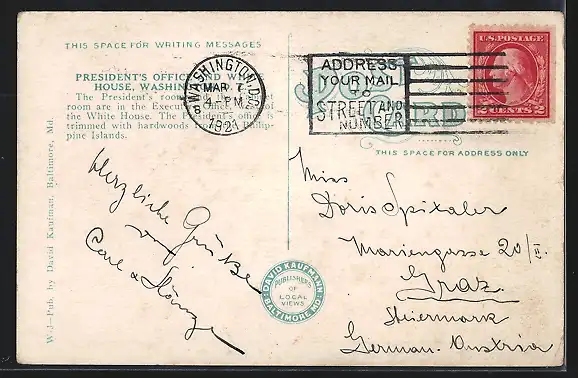 THIS SPACE FOR WRITING MESSAGES
PRESIDENT'S OFFICE AND WHITE
HOUSE, WASHINGTON
The President's room and Cabinet
room are in the Executive Office of
the White House. The President's office is
trimmed with hardwoods from the Philip-
pine Islands.
W-J-Pub. by David Kaufman, Baltimore, Md.
WASHINGTON, D.C.
MAR 7
4 PM
1921
ADDRESS
YOUR MAIL
TO
STREET AND
NUMBER
POST
CARD
U.S. POSTAGE
2 CENTS 2
THIS SPACE FOR ADDRESS ONLY
Herzliche Grüße
v
Carl &
DAVID KAUFMANN
PUBLISHERS
OF
LOCAL
VIEWS
BALTIMORE MD.
Miss
Doris Spitaler
Mariengasse 20/II.
Graz
Steiermark
German-Austria